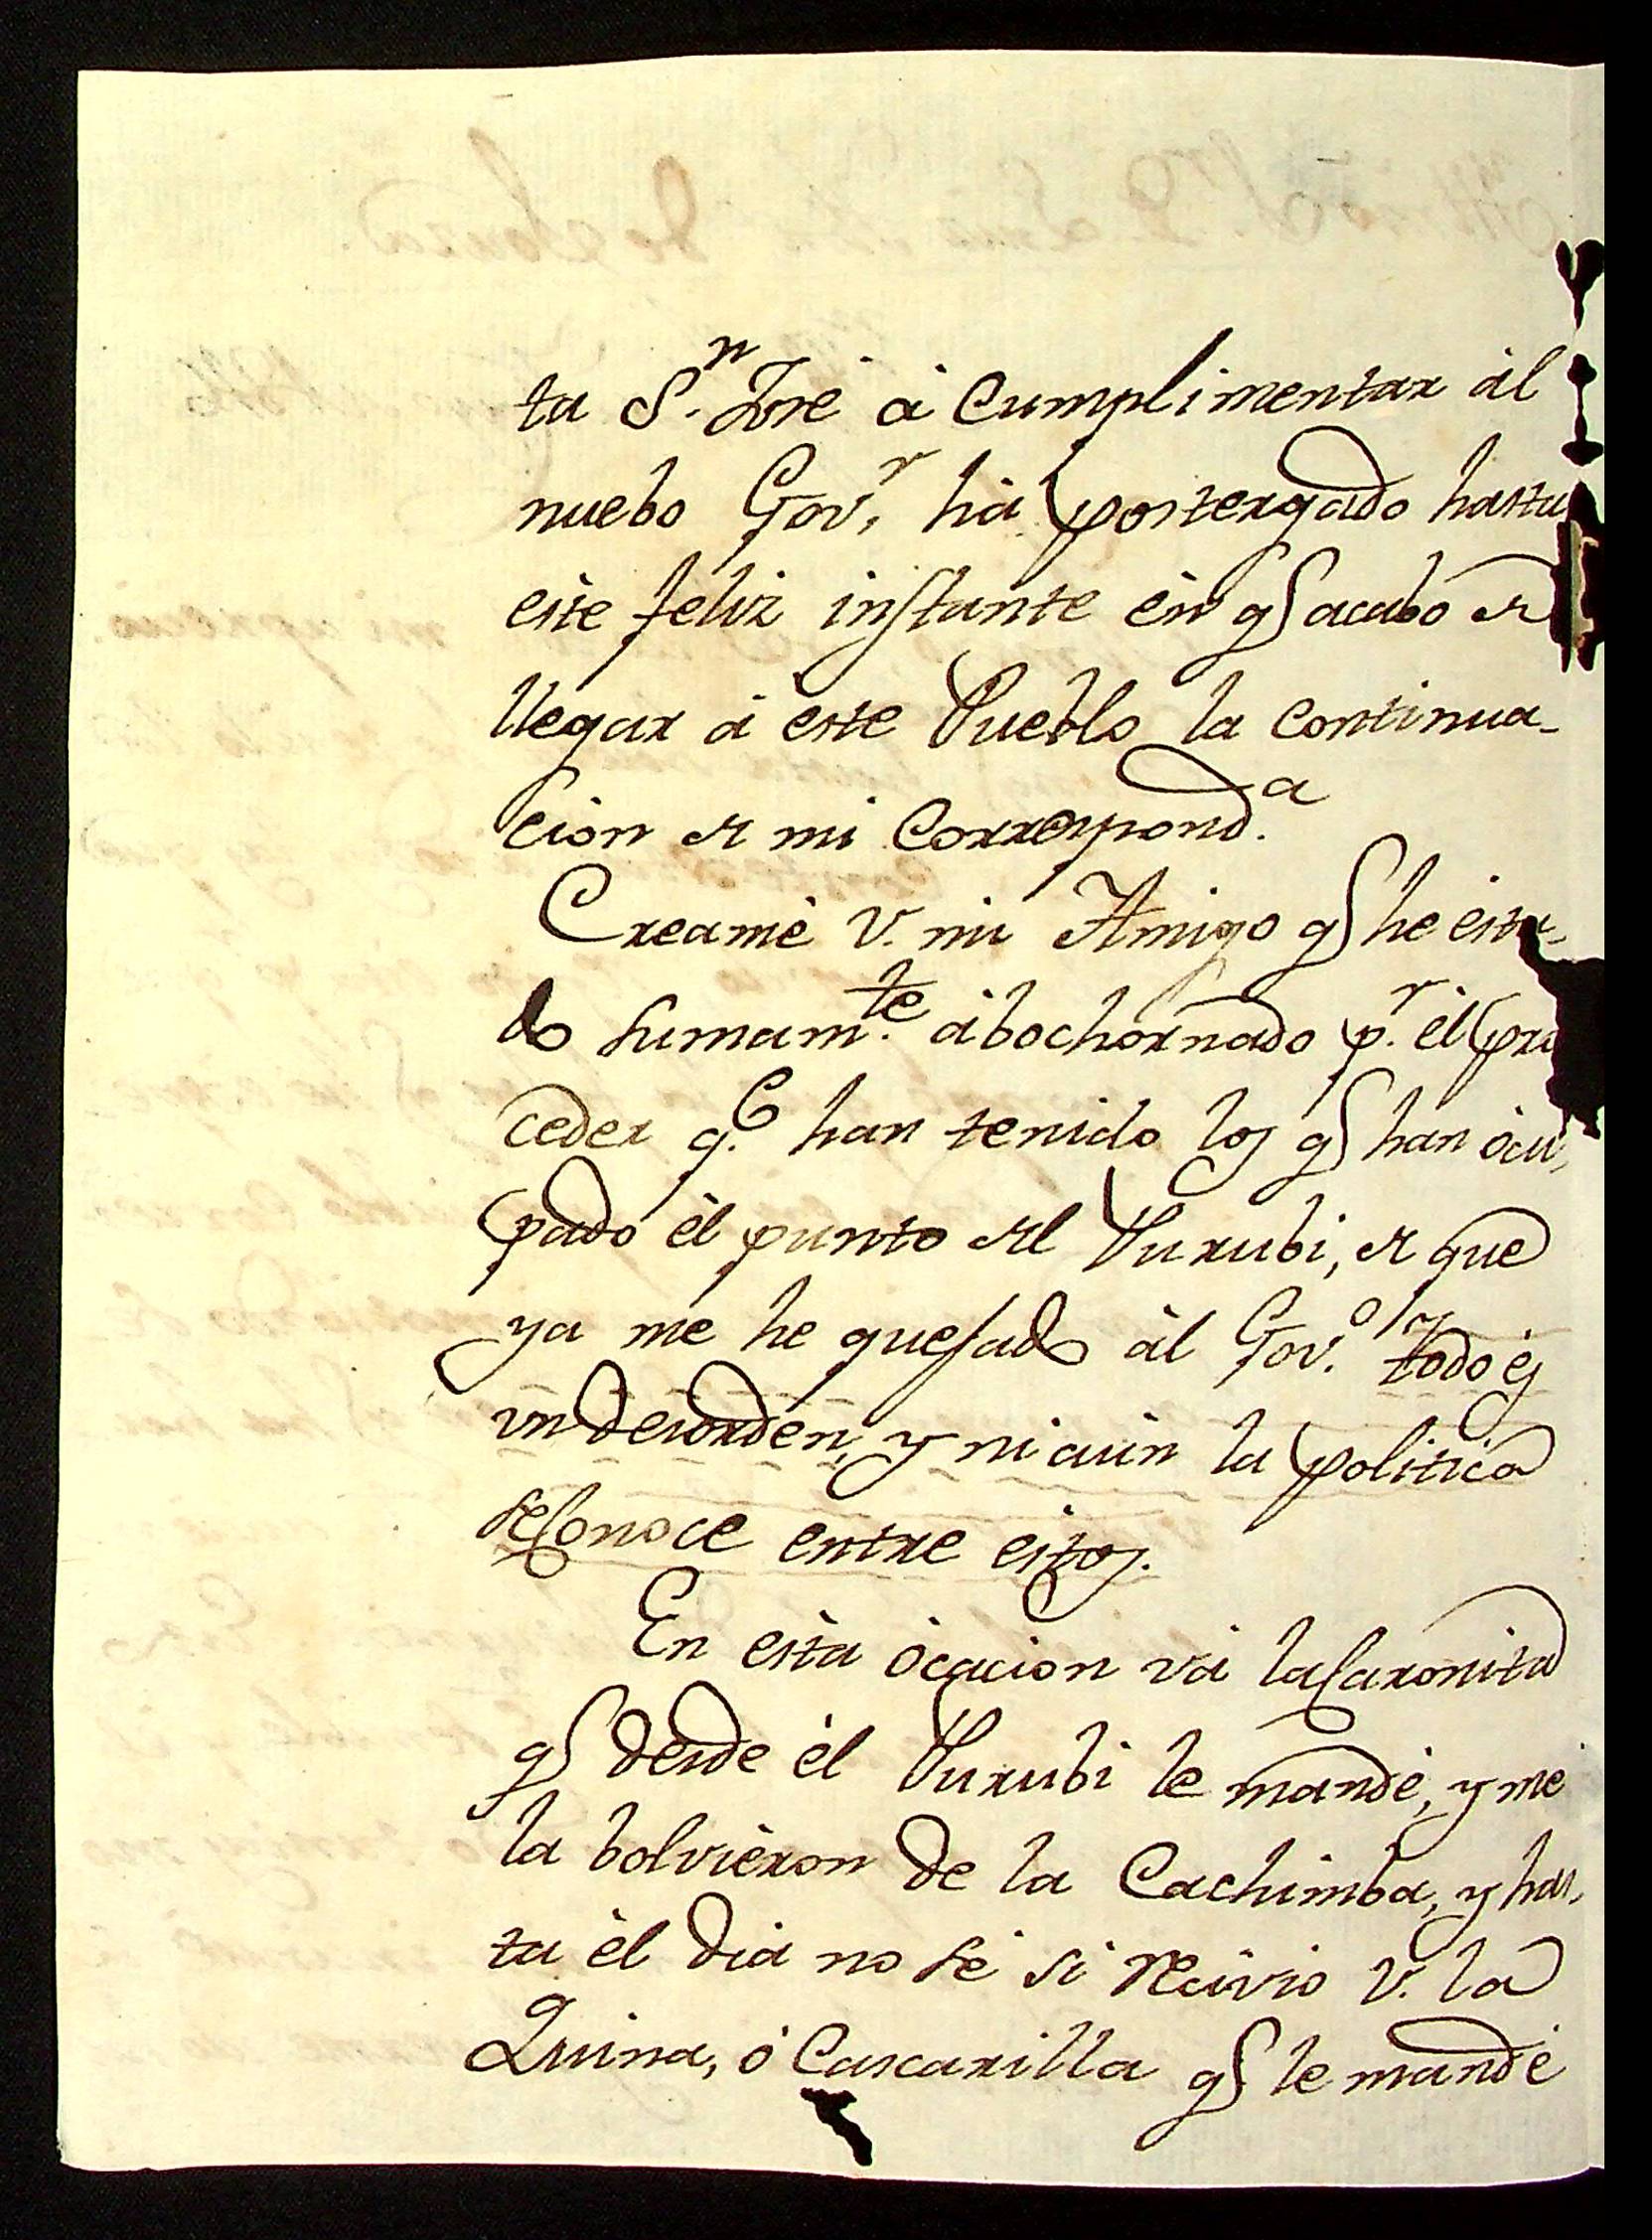 ta S.n Jose à Cumplimentar àl
nuebo Gov.r hà postergado hasta
este feliz instante èn q.e acabo de
llegar à èste Pueblo la continua-
cion de mi Correspond.a
Creamè V. mi Amigo q.e he esta-
do sumam.te àbochornado p.r èl pro
ceder q.e han tenido los q.e han òcu,
pado èl punto del Purubi, de que
ya me he quejado àl Gov.o/r todo es
un desorden, y ni aùn la politica
se Conoce entre estos.
En èsta òcacion và la Caronita
q.e desde èl Purubi le mandè, y me
la bolvièron de la Cachimba, y has,
ta èl dia no sè si recivio V. la
Quina, ò Cascarilla q.e le mandè